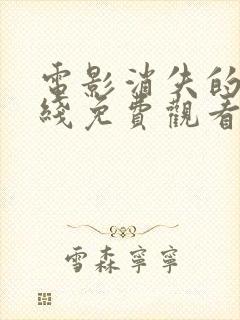 電影消失的
綫免費觀看
雪森寧寧